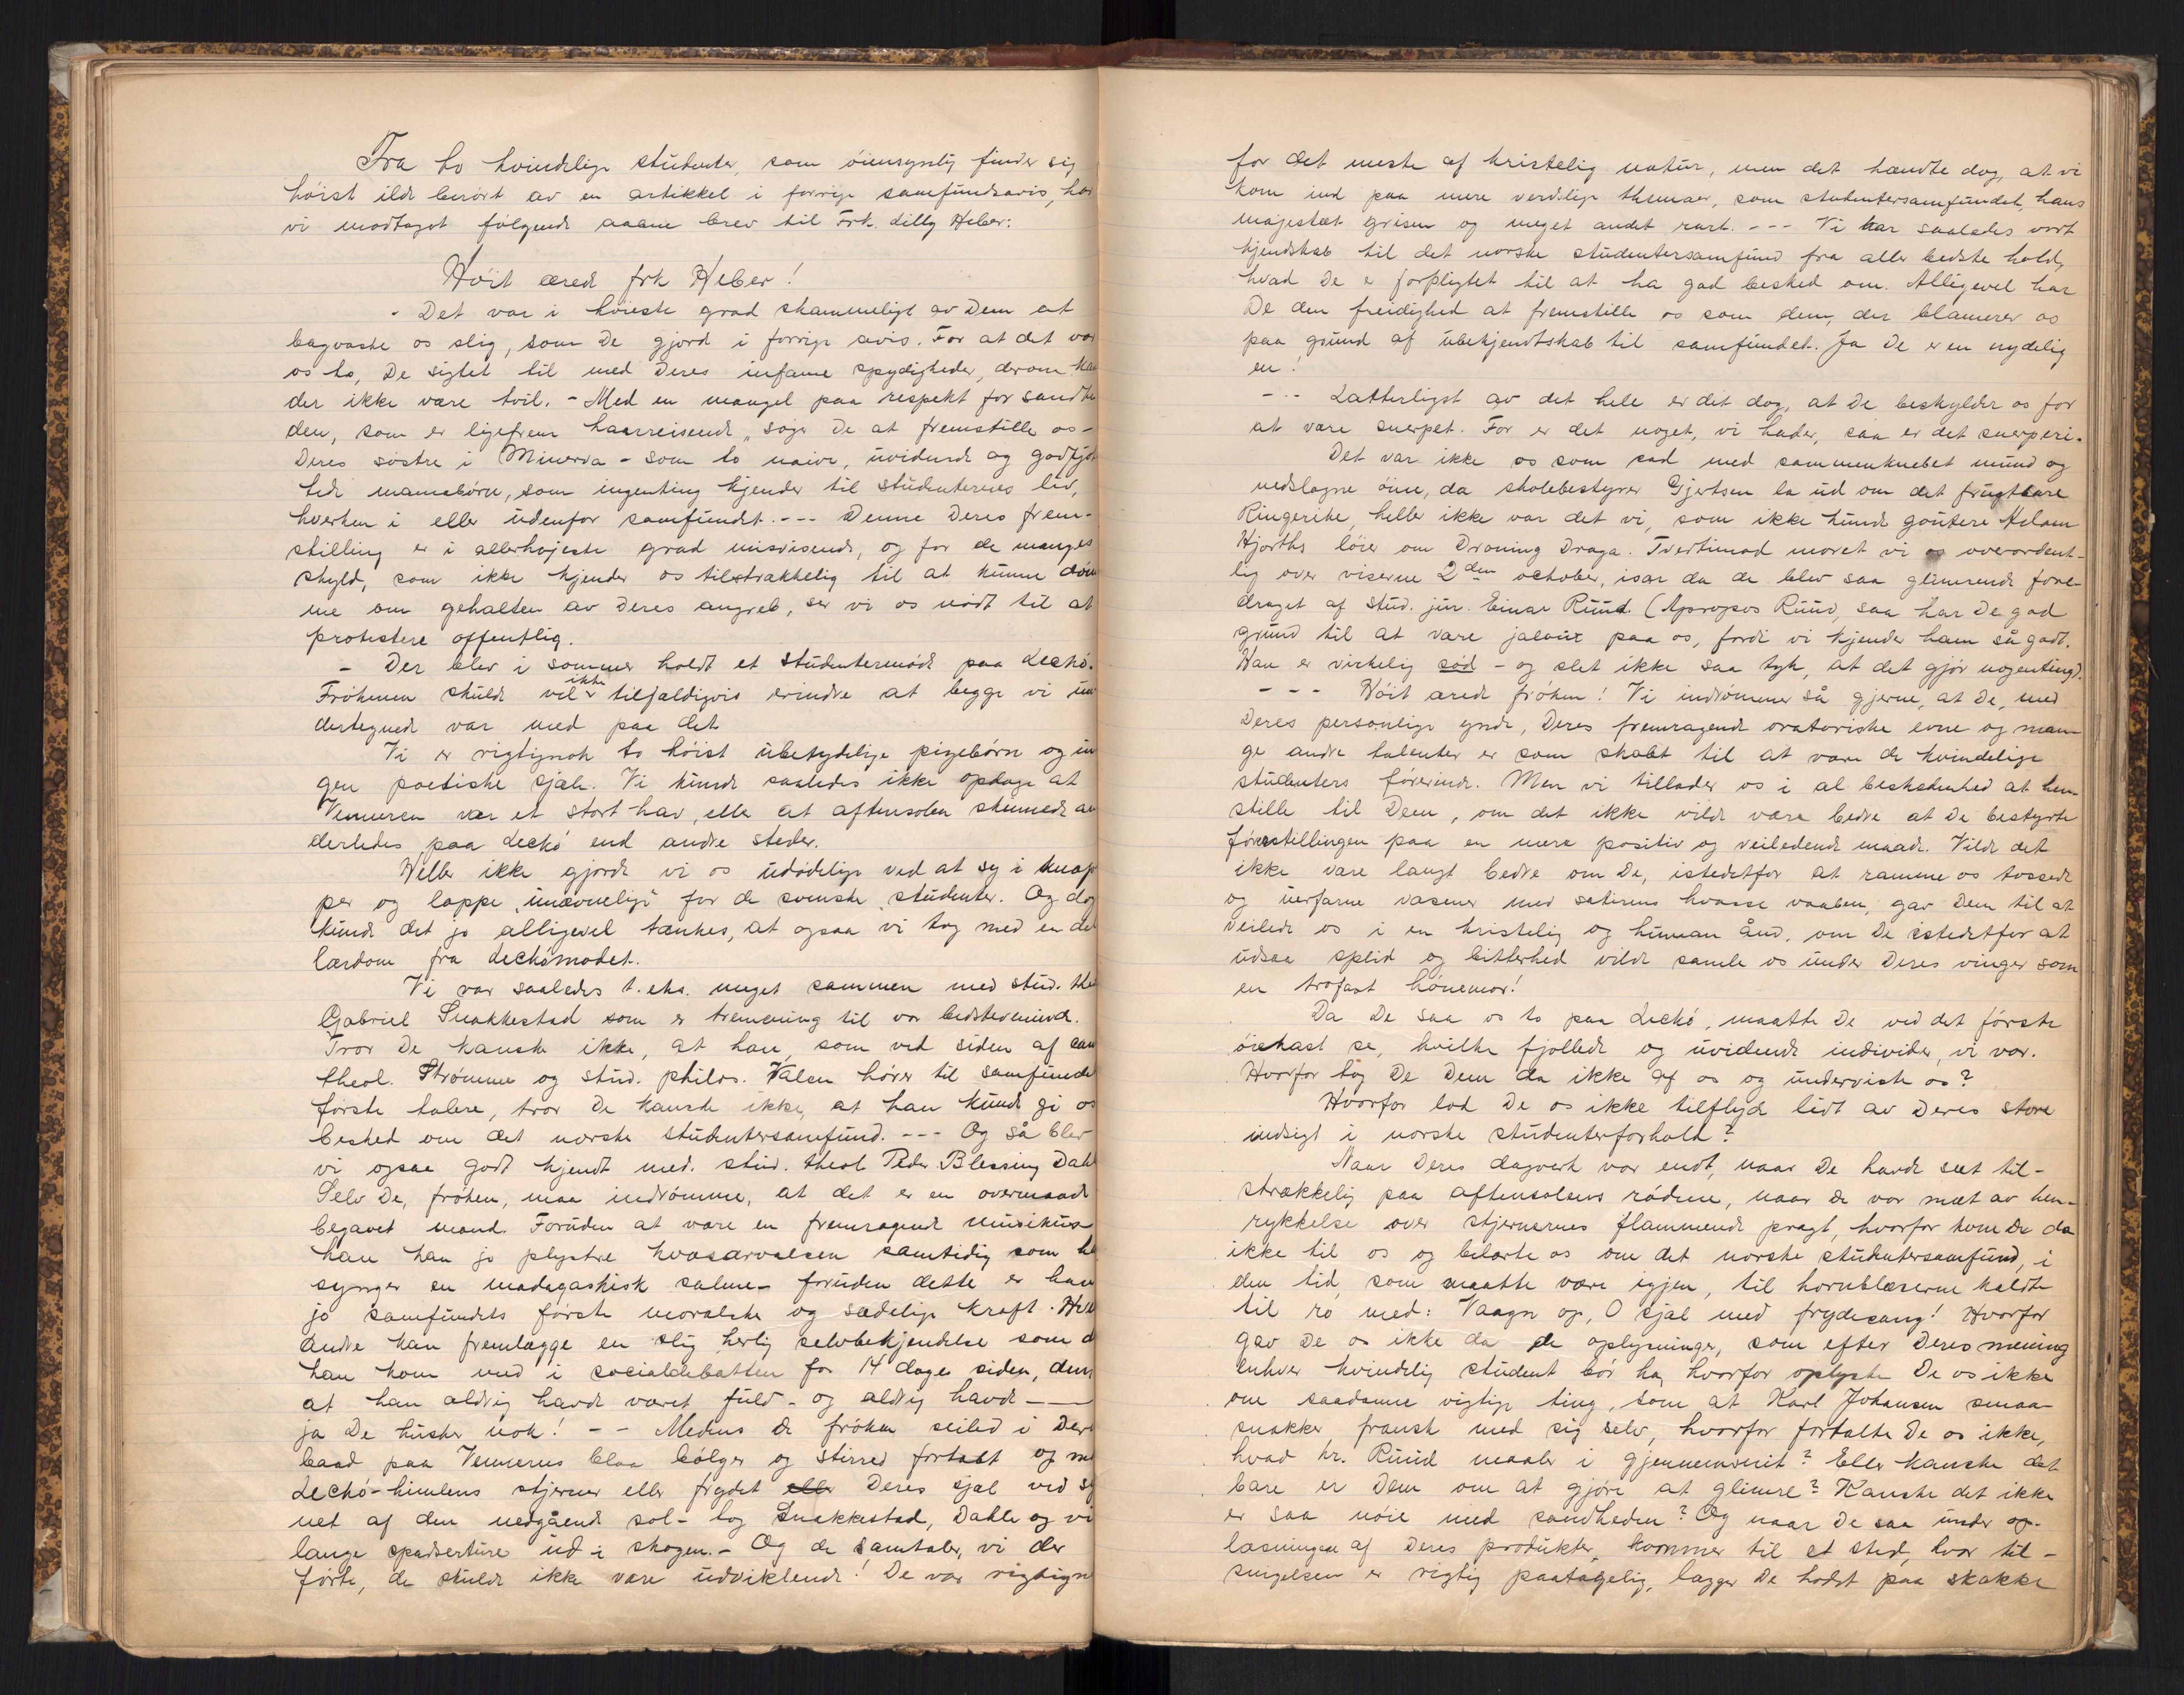 Fra to kvindelige studenter, som öiensynlig finder sig
höist ilde berört av en artikkel i forrige samfundsavis, har
vi modtaget følgende aapne brev til Frk. Lilly Heber:
Höit ærede frk Heber!
- Det var i höieste grad skammeligt av Dem at
bagvaske os slig, som De gjord i forrige avis. For at det var
os to, De sigtet til med Deres infame spydigheder, derom kan
der ikke være tvil. - Med en mangel paa respekt for sandhe
den, som er ligefrem haarreisende, søger De at fremstille os -
Deres söstre i Minerva - som to naive, uvidende og godtjø
tede mamabörn, som ingenting kjender til studenternes liv,
hverken i eller udenfor samfundet. --- Denne Deres frem-
stilling er i allerhøjeste grad misvisende, og for de manges
skyld, som ikke kjender os tilstrækkelig til at kunne döm
me om gehalten av Deres angreb, ser vi os nödt til at
protestere offentlig.
- Der blev i sommer holdt et studentermöde paa Leckö.
Frökenen skulde vel ikke tilfældigvis erindre at begge vi un
dertegnede var med paa det
Vi er rigtignok to höist ubetydelige pigebörn og in
gen poetiske sjæle. Vi kunde saaledes ikke opdage at
Vennern var et stort hav, eller at aftensolen skinnede an
derledes paa Leckö end andre steder.
Heller ikke gjorde vi os udödelige ved at sy i knap
per og lappe „unævnelige“ for de svenske studenter. Og dog
kunde det jo alligevel tænkes, at ogsaa vi tog med en del
lærdom fra Leckömødet.
Vi var saaledes t. eks. meget sammen med stud. theol
Gabriel Snakkestad som er tremenning til vor bedsteveninde.
Tror De kanske ikke, at han, som ved siden af cand
theol. Strømme og stud. philos. Valen hører til samfundets
første talere, tror De kanske ikke, at han kunde gi os
besked om det norske studentersamfund. --- Og så blev
vi ogsaa godt kjendt med. stud. theol Peder Blessing Dahle
Selv De, fröken, maa indrömme, at det er en overmaade
begavet mand. Foruden at være en fremragende musikus
kan han jo plystre hvasarvalsen samtidig som han
synger en madagaskisk salme - foruden dette er han
jo samfundets første moralske og sædelige kraft. Hvem
andre kan fremlægge en slig herlig selvbekjendelse som den
han kom med i socialdebatten for 14 dage siden, den
at han aldrig havde været fuld - og aldrig havde ---
ja De husker nok! -- Medens De fröken seiled i Deres
baad paa Vennerns blaa bölger og stirred fortabt og mod
Leckö-himlens stjerner eller frydet Deres sjæl ved sy
net af den nedgående sol - tog Snakkestad, Dahle og vi
lange spadserture ud i skogen. - Og de samtaler, vi der
førte, de skulde ikke være udviklende! De var rigtigno
for det meste af kristelig natur, men det hændte dog, at vi
kom ind paa mere verdslige themaer, som studentersamfundet, hans
majestæt grisen og meget andet rart. --- Vi har saaledes vort
kjendskab til det norske studentersamfund fra aller bedste hold,
hvad De er forpligtet til at ha god besked om. Alligevel har
De den freidighed at fremstille os som dem, der blamerer os
paa grund af ubekjendtskab til samfundet. Ja De er en nydelig
en!
--- Latterligst av det hele er det dog, at De beskylder os for
at være snerpet. For er det noget, vi hader, saa er det snerperi.
Det var ikke os som sad med sammenknebet mund og
nedslagne öine, da skolebestyrer Gjertsen la ud om det frugtbare
Ringerike, heller ikke var det vi, som ikke kunde goûtere Adam
Hjorths löier om Droning Draga. Tvertimod moret vi os overordent-
lig over viserne 2den october, især da de blev saa glimrende fore-
draget af stud. jur. Einar Ruud. (Apropos Ruud, saa har De god
grund til at være jaloux paa os, fordi vi kjender ham så godt.
Han er virkelig sød - og slet ikke saa tyk, at det gjör nogenting).
--- Höit ærede fröken! Vi indrömmer så gjerne, at De, med
Deres personlige ynde, Deres fremragende oratoriske evne og man-
ge andre talenter er som skabt til at være de kvindelige
studenters förerinde. Men vi tillader os i al beskedenhed at hen
stille til Dem, om det ikke vilde være bedre at De bestyrte
førerstillingen paa en mere positiv og veiledende maade. Vilde det
ikke være langt bedre om De, istedetfor at ramme os tossede
og uerfarne væsener med satirens hvasse vaaben, gav Dem til at
veilede os i en kristelig og human ånd, om De istedetfor at
udsaa splid og bitterhed vilde samle os under Deres vinger som
en trofast hönemor!
Da De saa os to paa Leckö, maatte De ved det første
öiekast se, hvilke fjollede og uvidende individer, vi var.
Hvorfor tog De Dem da ikke af os og underviste os?
Hvorfor lod De os ikke tilflyde lidt av Deres store
indsigt i norske studenterforhold?
Naar Deres dagverk var endt, naar De havde set til-
strækkelig paa aftensolens rödme, naar De var mæt av hen-
rykkelse over stjernernes flammende pragt, hvorfor kom De da
ikke til os og belærte os om det norske studentersamfund, i
den tid, som maatte være igjen, til hornblæserne kaldte
til ro med: Vaagn op, O sjæl med frydesang! Hvorfor
gav De os ikke da de oplysninger, som efter Deres mening
enhver kvindelig student bör ha, hvorfor oplyste De os ikke
om saadanne vigtige ting, som at Karl Johansen smaa-
snakker fransk med sig selv, hvorfor fortalte De os ikke,
hvad hr. Ruud maaler i gjennemsnit? Eller kanske det
bare er Dem om at gjöre at glimre? Kanske det ikke
er saa nöie med sandheden? Og naar De saa under op-
læsningen af Deres produkter, kommer til et sted, hvor til-
snigelsen er rigtig paatagelig, lægger De hodet paa skakke